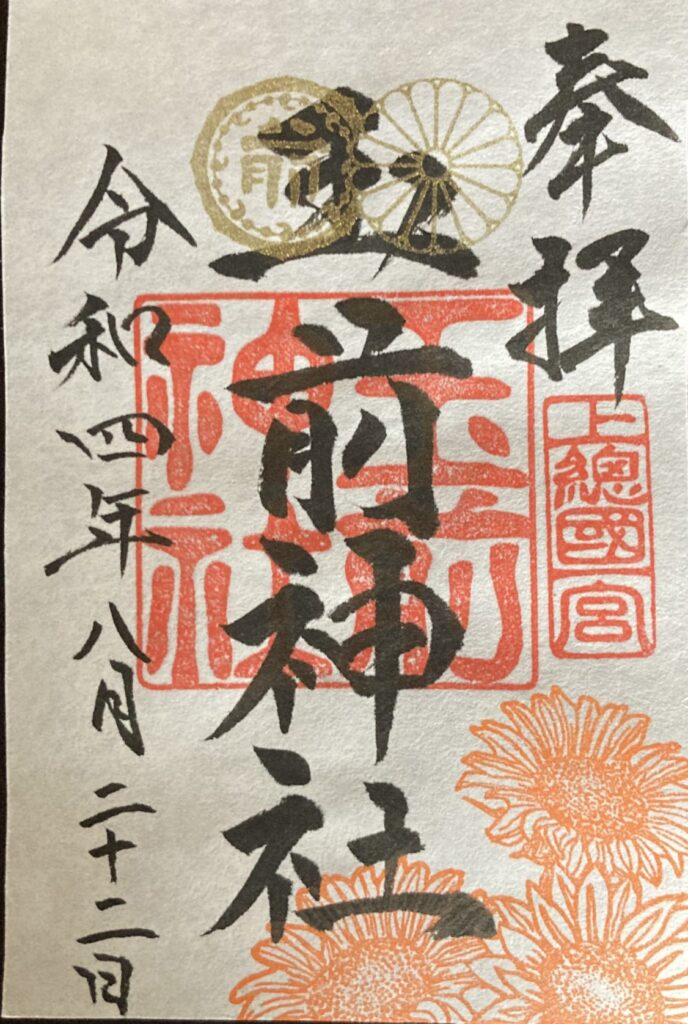 奉拝
上總國一宮
玉前神社
玉前神社
前
令和四年八月二十二日